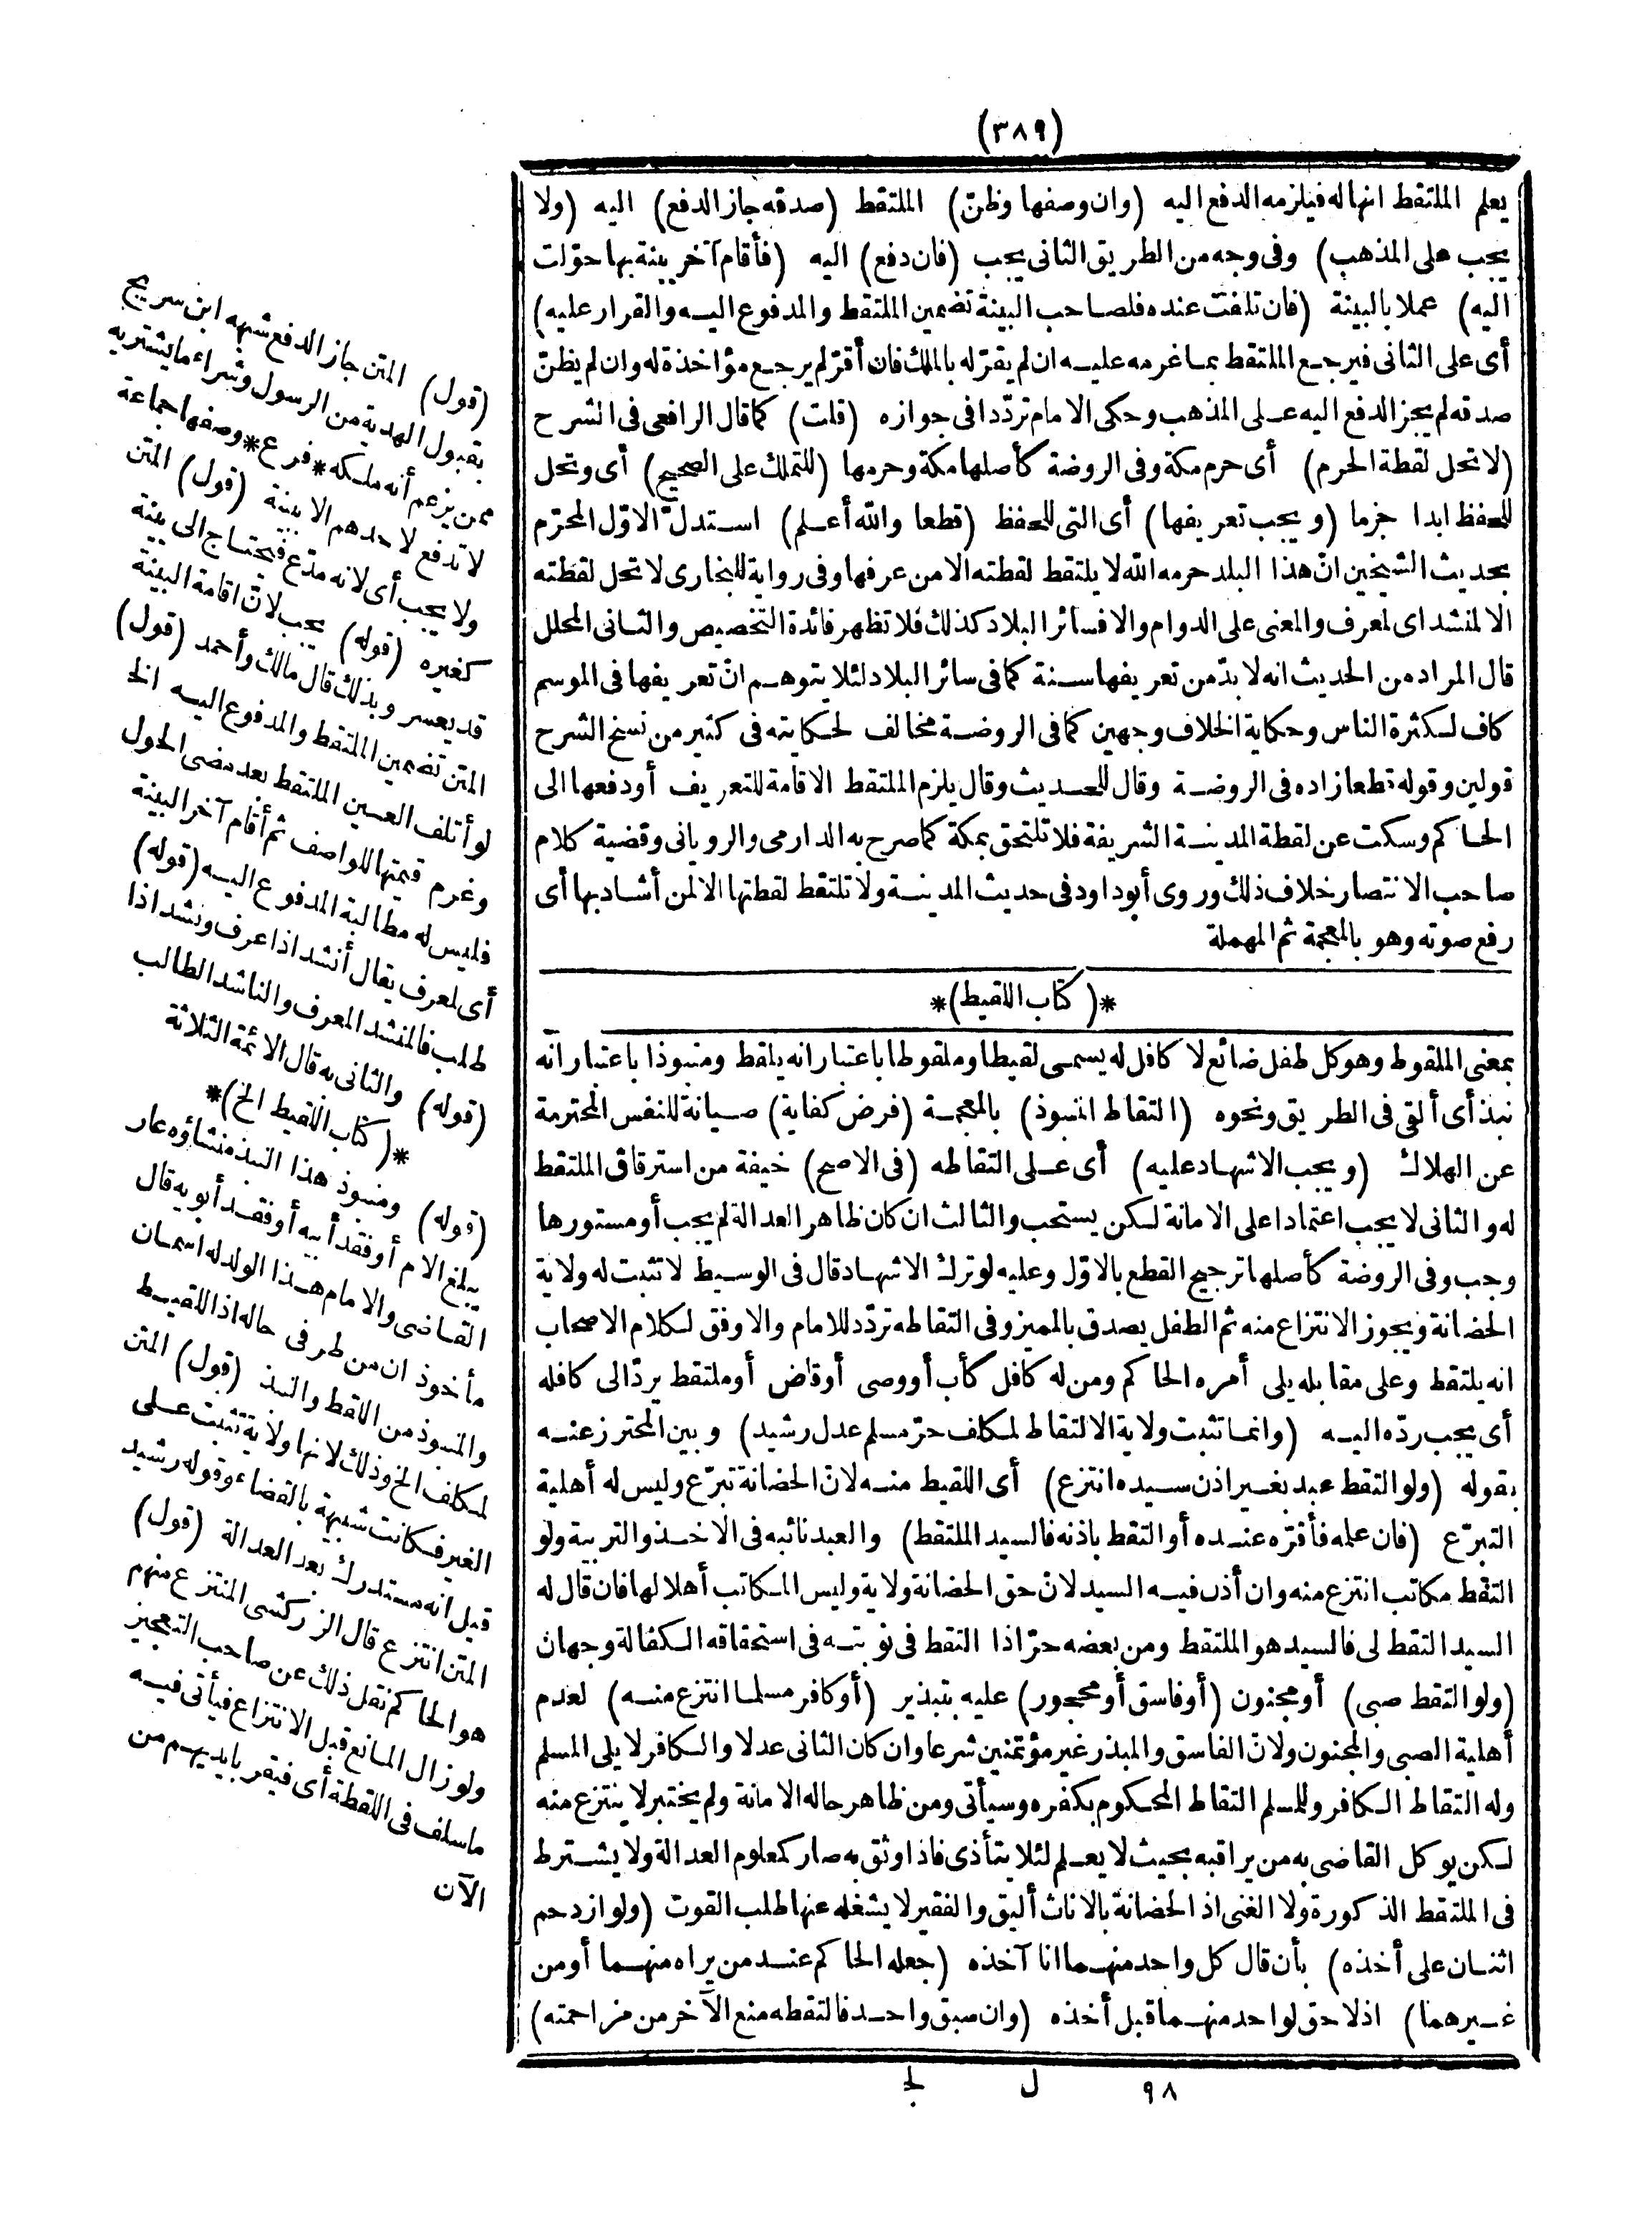 (٣٨٩)
يعلم الملتقط انها له فيلزمه الدفع اليه (وان وصفها وظنّ) الملتقط (صدقه جاز الدفع) اليه (ولا
يجب على المذهب) وفى وجه من الطريق الثانى يجب (فان دفع) اليه (فأقام آخر بينة بها حوّلت
اليه) عملا بالبينة (فان تلفت عنده فلصاحب البينة تضمين الملتقط والمدفوع اليه والقرار عليه)
أى على الثانى فيرجع الملتقط بما غرمه عليه ان لم يقرّ له بالملك فان أقرّ لم يرجع مؤاخذة له وان لم يظنّ
صدقه لم يجز الدفع اليه على المذهب وحكى الامام تردّدا فى جوازه (قلت) كما قال الرافعى فى الشرح
(لا تحل لقطة الحرم) أى حرم مكة وفى الروضة كأصلها مكة وحرمها (للتملك على الصحيح) أى وتحل
للحفظ ابدا جزما (ويجب تعريفها) أى التى للحفظ (قطعا والله أعلم) استدلّ الاوّل المحرّم
بحديث الشيخين انّ هذا البلد حرمه الله لا يلتقط لقطته الا من عرفها وفى رواية للبخارى لا تحل لقطته
الا لمنشد اى لمعرف والمعنى على الدوام والا فسائر البلاد كذلك فلا تظهر فائدة التخصيص والثانى المحلل
قال المراد من الحديث انه لا بدّ من تعريفها سنة كما فى سائر البلاد لئلا يتوهم انّ تعريفها فى الموسم
كاف لكثرة الناس وحكاية الخلاف وجهين كما فى الروضة مخالف لحكايته فى كثير من نسخ الشرح
قولين وقوله قطعا زاده فى الروضة وقال للحديث وقال يلزم الملتقط الاقامة للتعريف أو دفعها الى
الحاكم وسكت عن لقطة المدينة الشريفة فلا تلتحق بمكة كما صرح به الدارمى والرويانى وقضية كلام
صاحب الانتصار خلاف ذلك وروى أبو داود فى حديث المدينة ولا تلتقط لقطتها الا لمن أشاد بها أى
رفع صوته وهو بالمعجمة ثم المهملة
*(كتاب اللقيط)*
بمعنى الملقوط وهو كل طفل ضائع لا كافل له يسمى لقيطا وملقوطا باعتبار انه يلقط ومنبوذا باعتبار انه
نبذ أى ألقى فى الطريق ونحوه (التقاط المنبوذ) بالمعجمة (فرض كفاية) صيانة للنفس المحترمة
عن الهلاك (ويجب الاشهاد عليه) أى على التقاطه (فى الاصح) خيفة من استرقاق الملتقط
له والثانى لا يجب اعتمادا على الامانة لكن يستحب والثالث ان كان ظاهر العدالة لم يجب أو مستورها
وجب وفى الروضة كأصلها ترجيح القطع بالاوّل وعليه لو ترك الاشهاد قال فى الوسيط لا تثبت له ولاية
الحضانة ويجوز الانتزاع منه ثم الطفل يصدق بالمميز وفى التقاطه تردّد للامام والاوفق لكلام الاصحاب
انه يلتقط وعلى مقابله يلى أمره الحاكم ومن له كافل كأب أو وصى أو قاض أو ملتقط يردّ الى كافله
أى يجب ردّه اليه (وانما تثبت ولاية الالتقاط لمكلف حرّ مسلم عدل رشيد) وبين المحترز عنه
بقوله (ولو التقط عبد بغير اذن سيده انتزع) أى اللقيط منه لانّ الحضانة تبرّع وليس له أهلية
التبرّع (فان علمه فأقرّه عنده أو التقط باذنه فالسيد الملتقط) والعبد نائبه فى الاخذ والتربية ولو
التقط مكاتب انتزع منه وان أذن فيه السيد لانّ حق الحضانة ولاية وليس المكاتب أهلا لها فان قال له
السيد التقط لى فالسيد هو الملتقط ومن بعضه حرّ اذا التقط فى نوبته فى استحقاقه الكفالة وجهان
(ولو التقط صبى) أو مجنون (أو فاسق أو محجور) عليه بتبذير (أو كافر مسلما انتزع منه) لعدم
أهلية الصبى والمجنون ولانّ الفاسق والمبذر غير مؤتمنين شرعا وان كان الثانى عدلا والكافر لا يلى المسلم
وله التقاط الكافر وللمسلم التقاط المحكوم بكفره وسيأتى ومن ظاهر حاله الامانة ولم يختبر لا ينتزع منه
لكن يوكل القاضى به من يراقبه بحيث لا يعلم لئلا يتأذى فاذا وثق به صار كمعلوم العدالة ولا يشترط
فى الملتقط الذكورة ولا الغنى اذ الحضانة بالاناث أليق والفقير لا يشغله عنها طلب القوت (ولو ازدحم
اثنان على أخذه) بأن قال كل واحد منهما انا آخذه (جعله الحاكم عند من يراه منهما أو من
غيرهما) اذ لا حق لواحد منهما قبل أخذه (وان سبق واحد فالتقطه منع الآخر من مزاحمته)
(قول) المتن جاز الدفع شبهه ابن سريج
بقبول الهدية من الرسول وشراء ما يشتريه
ممن يزعم أنه ملكه *فرع* وصفها جماعة
لا تدفع لاحدهم الا ببينة (قول) المتن
ولا يجب أى لانه مدّع فيحتاج الى بينة
كغيره (قوله) يجب لانّ اقامة البينة
قد يعسر وبذلك قال مالك وأحمد (قول)
المتن تضمين الملتقط والمدفوع اليه الخ
لو أتلف العين الملتقط بعد مضى الحول
وغرم قيمتها للواصف ثم أقام آخر البينة
فليس له مطالبة المدفوع اليه (قوله)
أى لمعرف يقال أنشد اذا عرف ونشد اذا
طلب فالمنشد المعرف والناشد الطالب
(قوله) والثانى به قال الائمة الثلاثة
*(كتاب اللقيط الخ)*
(قوله) ومنبوذ هذا النبذ منشاؤه عار
يبلغ الام أو فقد أبيه أو فقد أبويه قال
القاضى والامام هذا الولد له اسمان
مأخوذان من طرفى حاله اذ اللقيط
والمنبوذ من اللقط والنبذ (قول) المتن
لمكلف الخ وذلك لانها ولاية تثبت على
الغير فكانت شبيهة بالقضاء وقوله رشيد
قيل انه مستدرك بعد العدالة (قول)
المتن انتزع قال الزركشى المنتزع منهم
هو الحاكم نقل ذلك عن صاحب التعجيز
ولو زال المانع قبل الانتزاع فيأتى فيه
ما سلف فى اللقطة أى فيقر بايديهم من
الآن
٩٨ ل لج